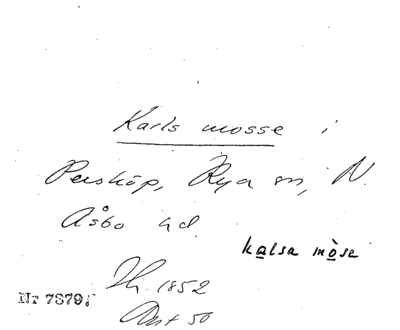 Karls mosse i
Perstöp, Rya sn, N.
Åsbo hd.
kalsa mòse
Th. 1852
Nr 7379;
Ant 50